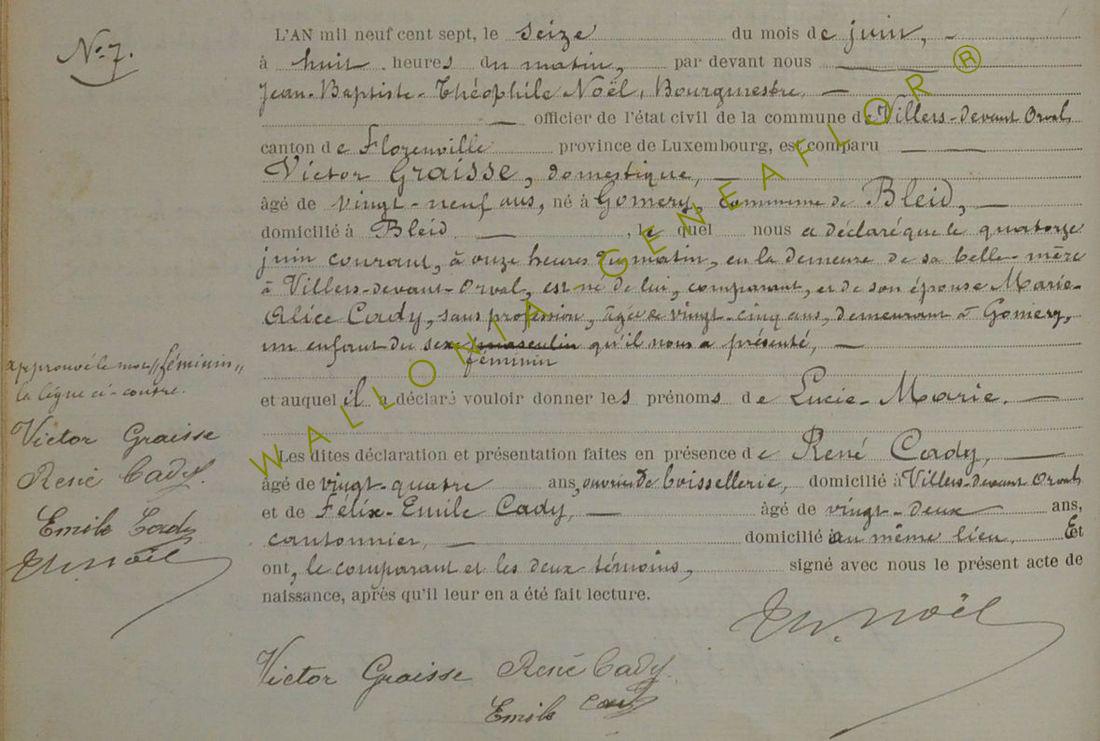 N° 7.
L'AN mil neuf cent sept, le seize du mois de juin,
à huit heures du matin, par devant nous
Jean-Baptiste-Théophile Noël, Bourgmestre
officier de l'état civil de la commune de Villers-devant Orval
canton de Florenville province de Luxembourg, est comparu
Victor Graisse, domestique,
âgé de vingt-neuf ans, né à Gomery, commune de Bleid,
domicilié à Bleid, le quel nous a déclaré que le quatorze
juin courant, à onze heures du matin, en la demeure de sa belle-mère
à Villers-devant-Orval, est né de lui, comparant, et de son épouse Marie-
Alice Cady, sans profession, âgée de vingt-cinq ans, demeurant à Gomery,
un enfant du sexe masculin qu'il nous a présenté,
féminin
et auquel il a déclaré vouloir donner les prénoms de Lucie-Marie.
Les dites déclaration et présentation faites en présence de René Cady,
âgé de vingt-quatre ans, ouvrier de boissellerie, domicilié à Villers-devant Orval
et de Félix-Emile Cady, âgé de vingt-deux ans,
cantonnier, domicilié au même lieu. Et
ont, le comparant et les deux témoins, signé avec nous le présent acte de
naissance, après qu'il leur en a été fait lecture.
Th. Noël
Victor Graisse René Cady
Emile Cady
approuvé le mot "féminin"
la ligne ci-contre.
Victor Graisse
René Cady.
Emile Cady
Th. Noël
WALLONIA-GENEAFLOR ®